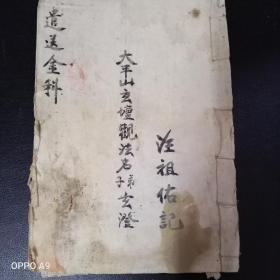 汪祖佑記
大平山玄壇觀法名弟子玄澄
遣送金科
OPPO A9